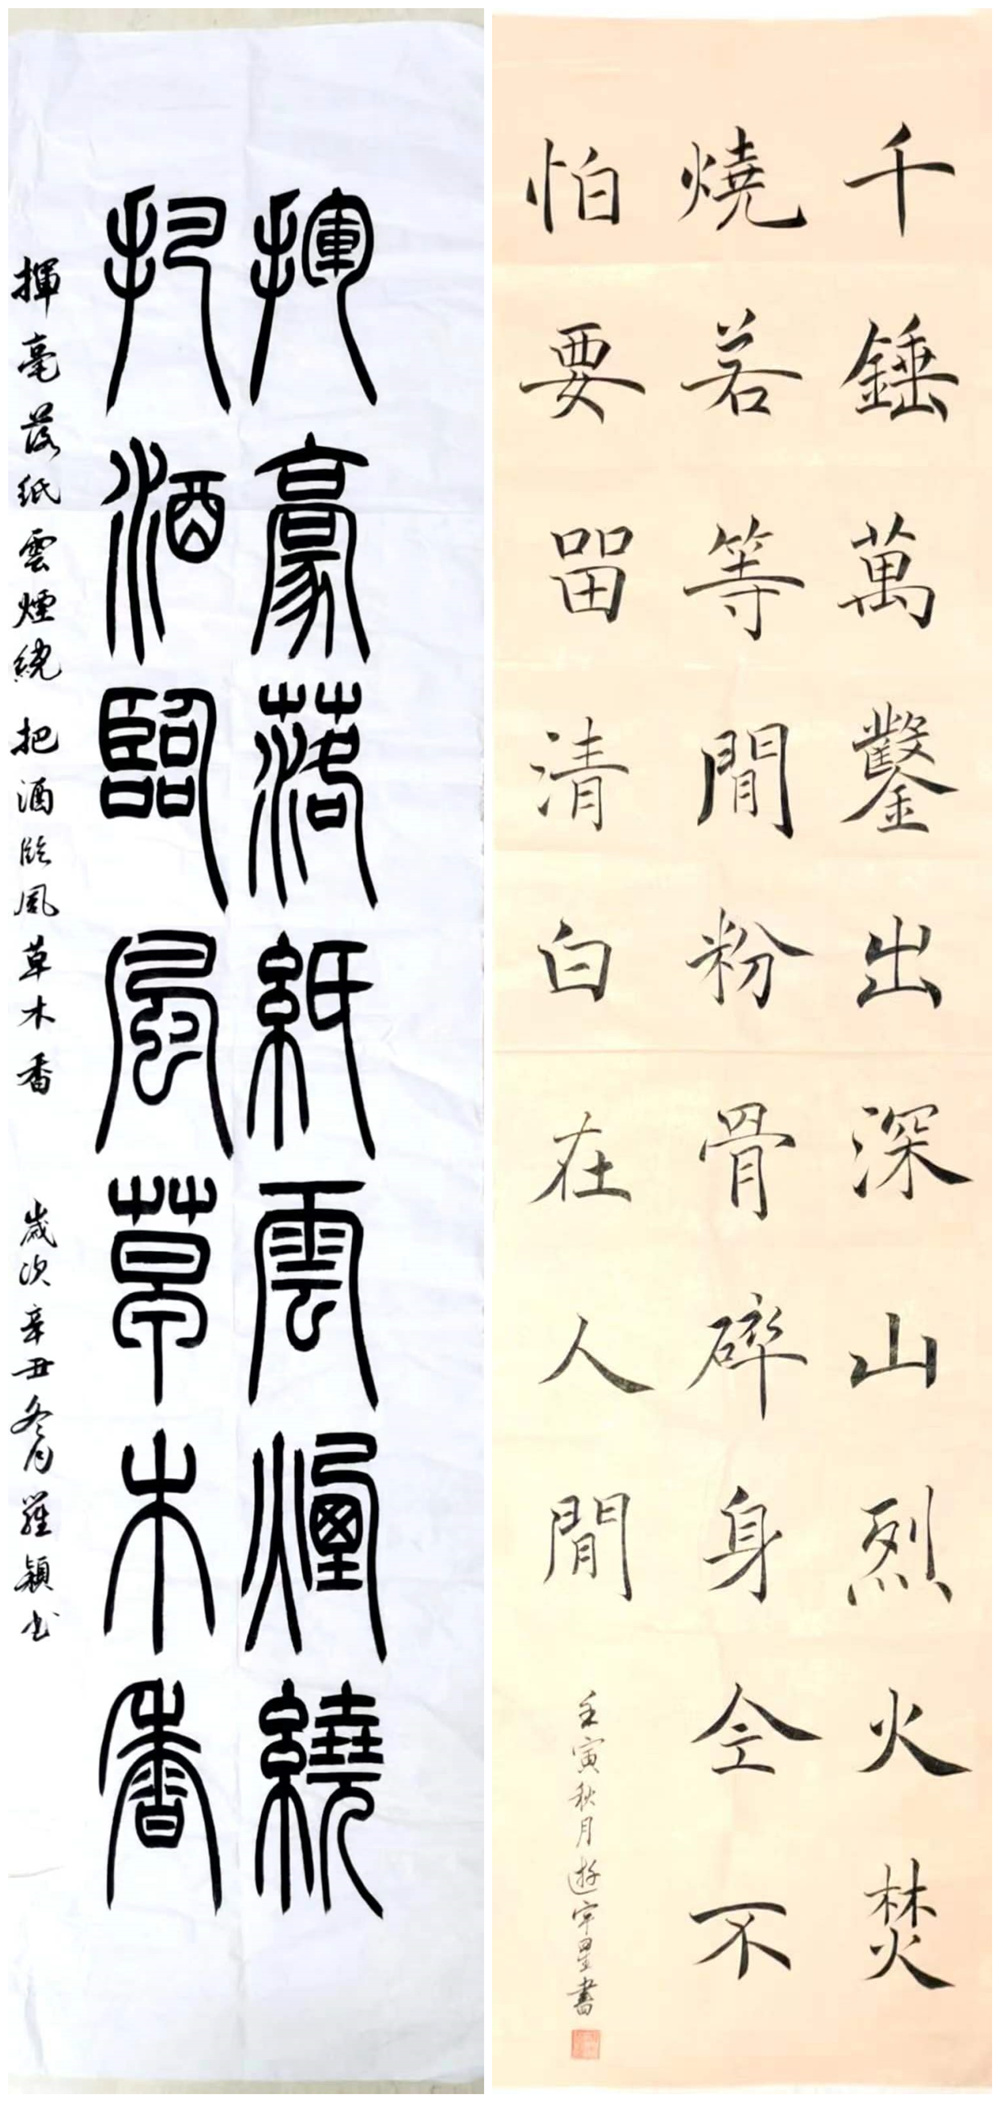 揮豪落紙雲煙繞
把酒臨風草木香
揮毫落紙雲煙繞 把酒臨風草木香 歲次辛丑冬月羅穎书
千錘萬鑿出深山烈火焚
燒若等閒粉骨碎身全不
怕要留清白在人閒
壬寅秋月遊宇星書